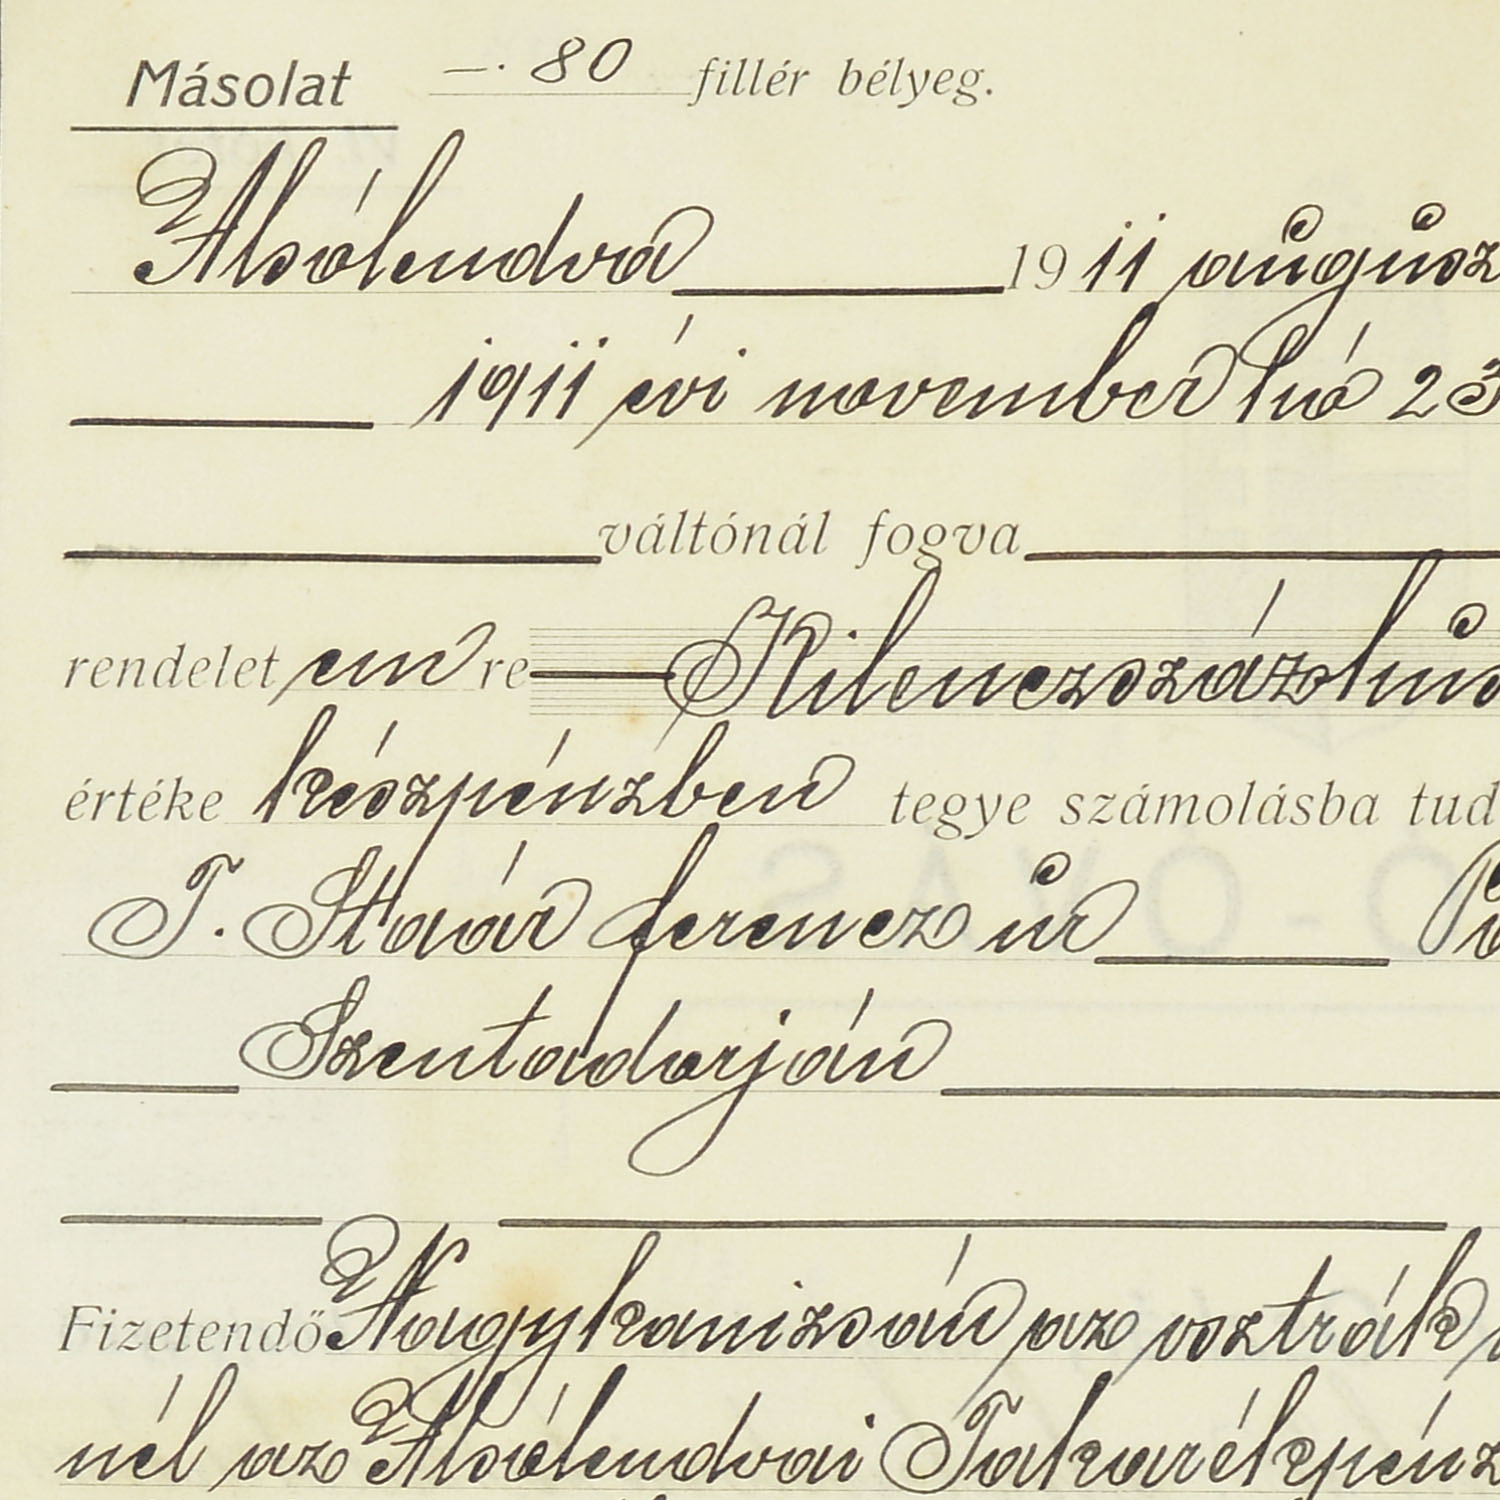 Másolat —. 80 fillér bélyeg.
Alsólendva 1911 augusz
1911 évi november hó 23
váltónál fogva
rendelet em re Kilenczszázhús
értéke készpénzben tegye számolásba tud
T. Staár ferencz úr
Szentadorján
Fizetendő Nagykanizsán az osztrák
nél az Alsólendvai Takarékpénz